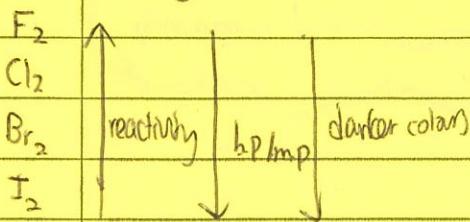 F₂
Cl₂
Br₂ reactivity bp/mp darker colours
I₂